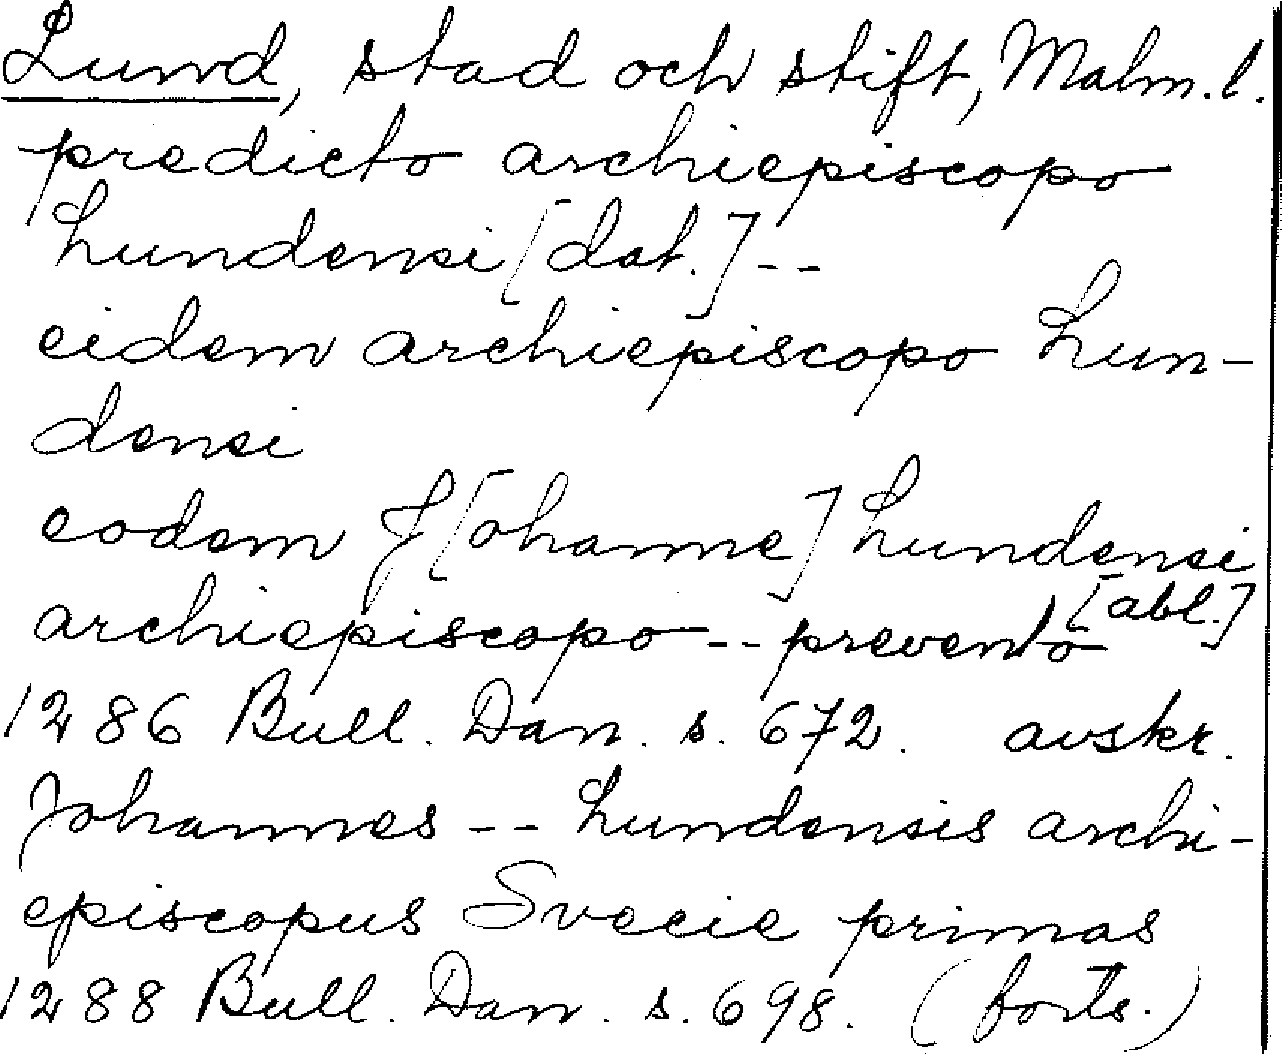 Lund, stad och stift, Malm. l.
predicto archiepiscopo
Lundensi [dat.] --
eidem archiepiscopo Lun-
densi
eodem J[ohanne] Lundensi
archiepiscopo -- prevento [abl.]
1286 Bull. Dan. s. 672. avskr.
Johannes -- Lundensis archi-
episcopus Svecie primas
1288 Bull. Dan. s. 698. (forts.)